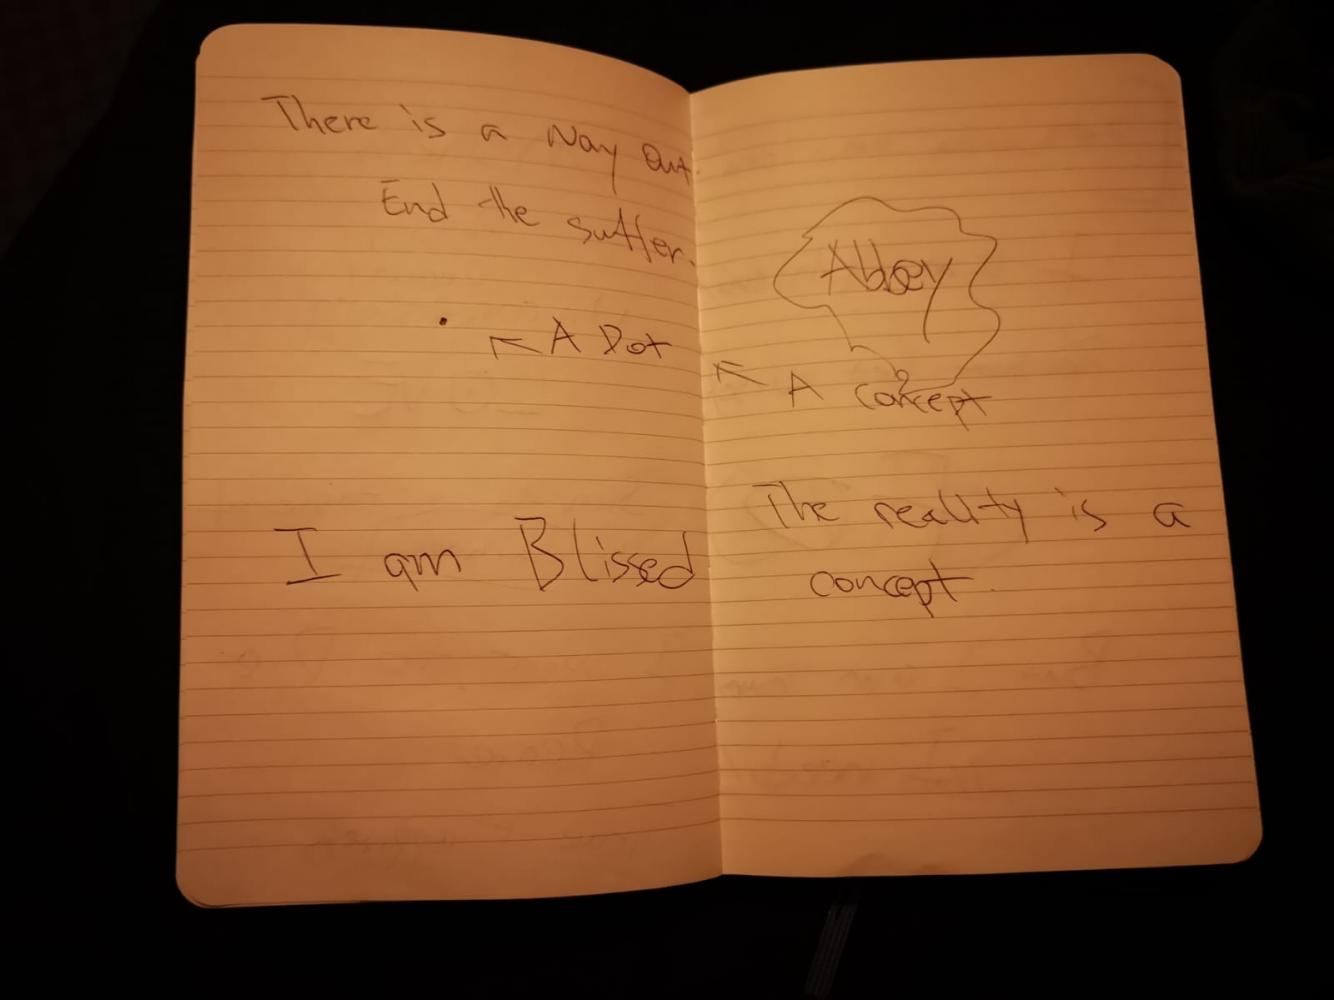 There is a way out.
End the suffer.
A Dot
I am Blissed
Abbey
A concept
The reality is a
concept.